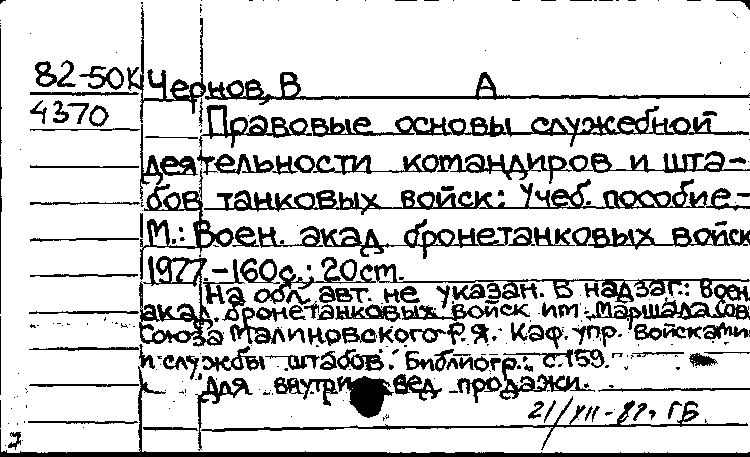 82-50К Чернов, В А
4370 Правовые основы служебной
деятельности командиров и шта-
бов танковых войск: Учеб. пособие.-
М.: Воен. акад. бронетанковых войск
1977.-160с.; 20ст.
На обл. авт. не указан. В надзаг.: Воен.
акад. бронетанковых войск им. Маршала Сов
Союза Малиновского Р.Я. Каф. упр. войсками
и службы штабов. Библиогр.: с.159.
Для внутри вед. продажи.
21/XII-82г. ГБ